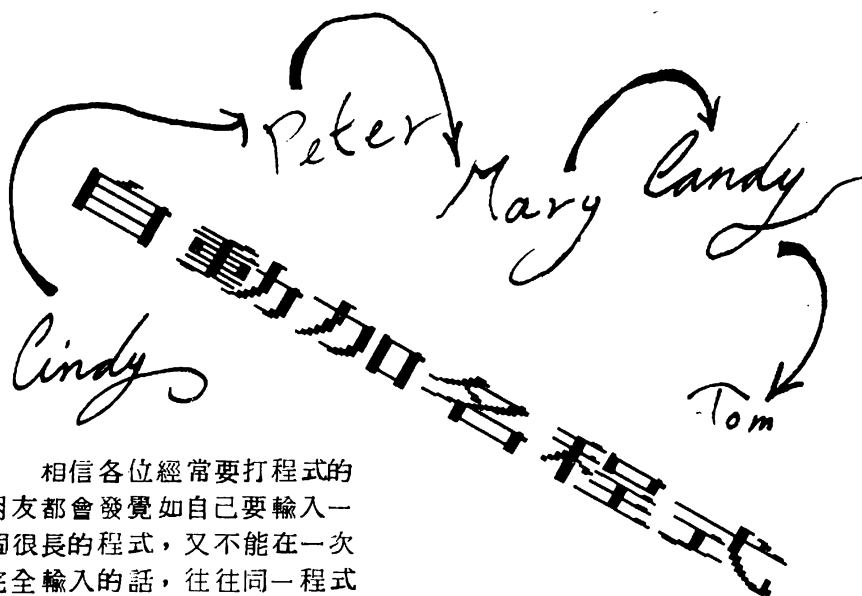 Peter
Mary
Candy
Cindy
Tom
自動加名程式
相信各位經常要打程式的
朋友都會發覺如自己要輸入一
個很長的程式，又不能在一次
完全輸入的話，往往同一程式